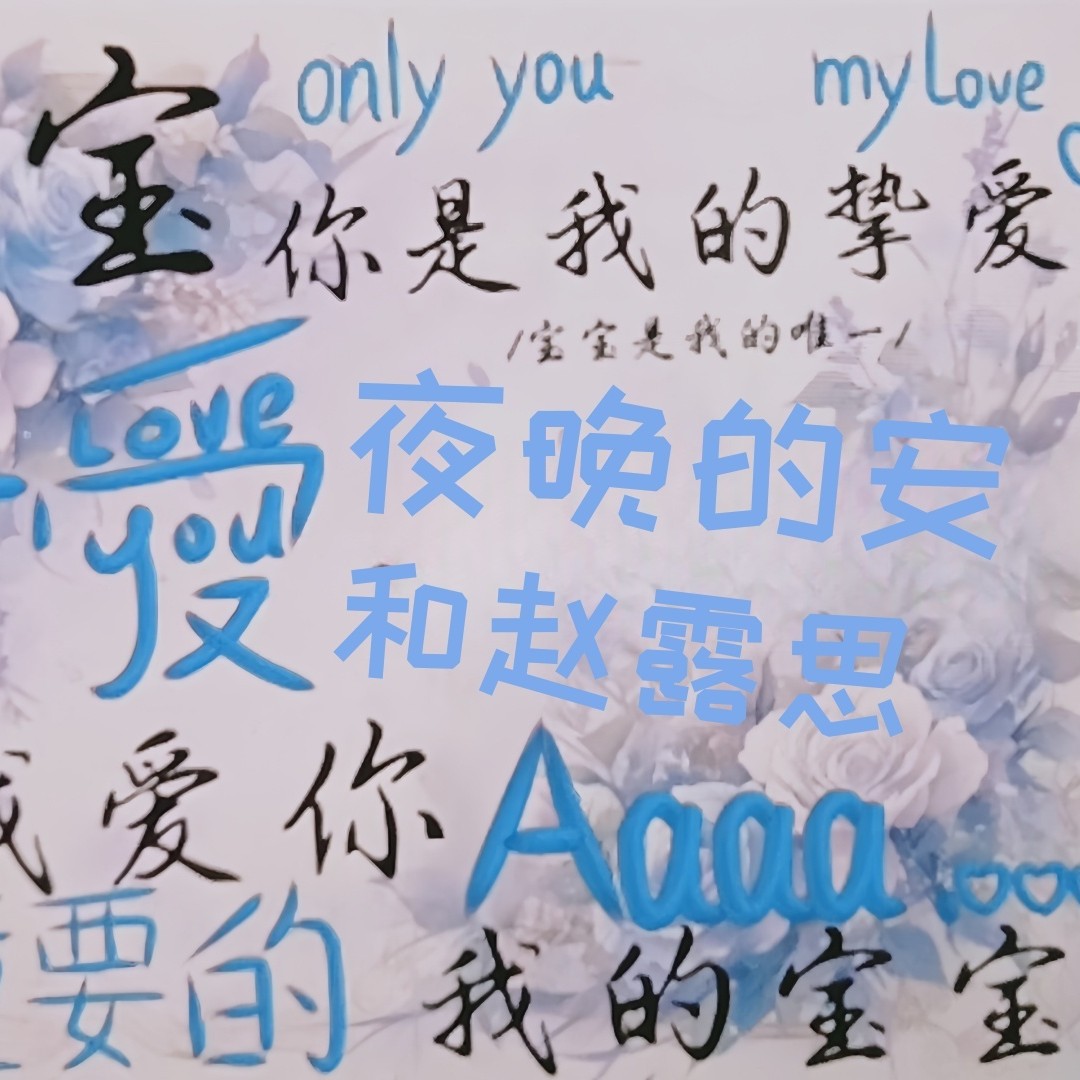 only you my Love
宝
你是我的挚爱
/宝宝是我的唯一/
Love
you
夜晚的安
和赵露思
我爱你
Aaaaa
要的
我的宝宝